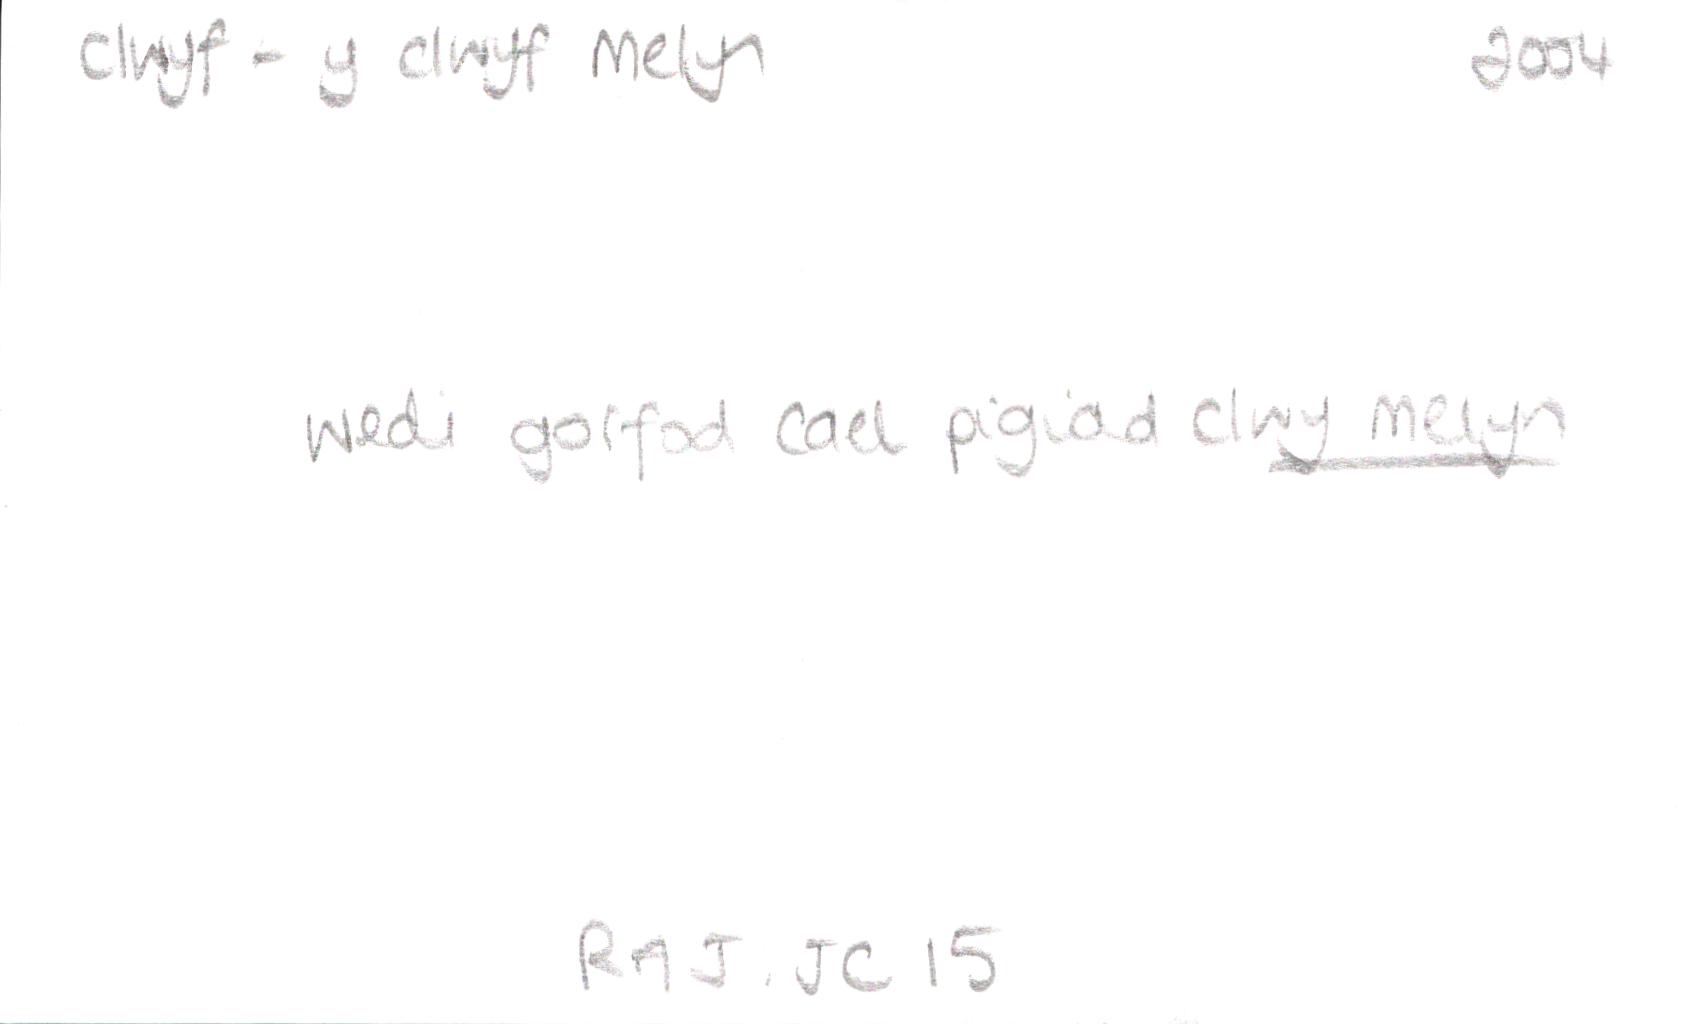 clwyf - y clwyf melyn 2004
wedi gorfod cael pigiad clwy melyn
RAJ. JC 15